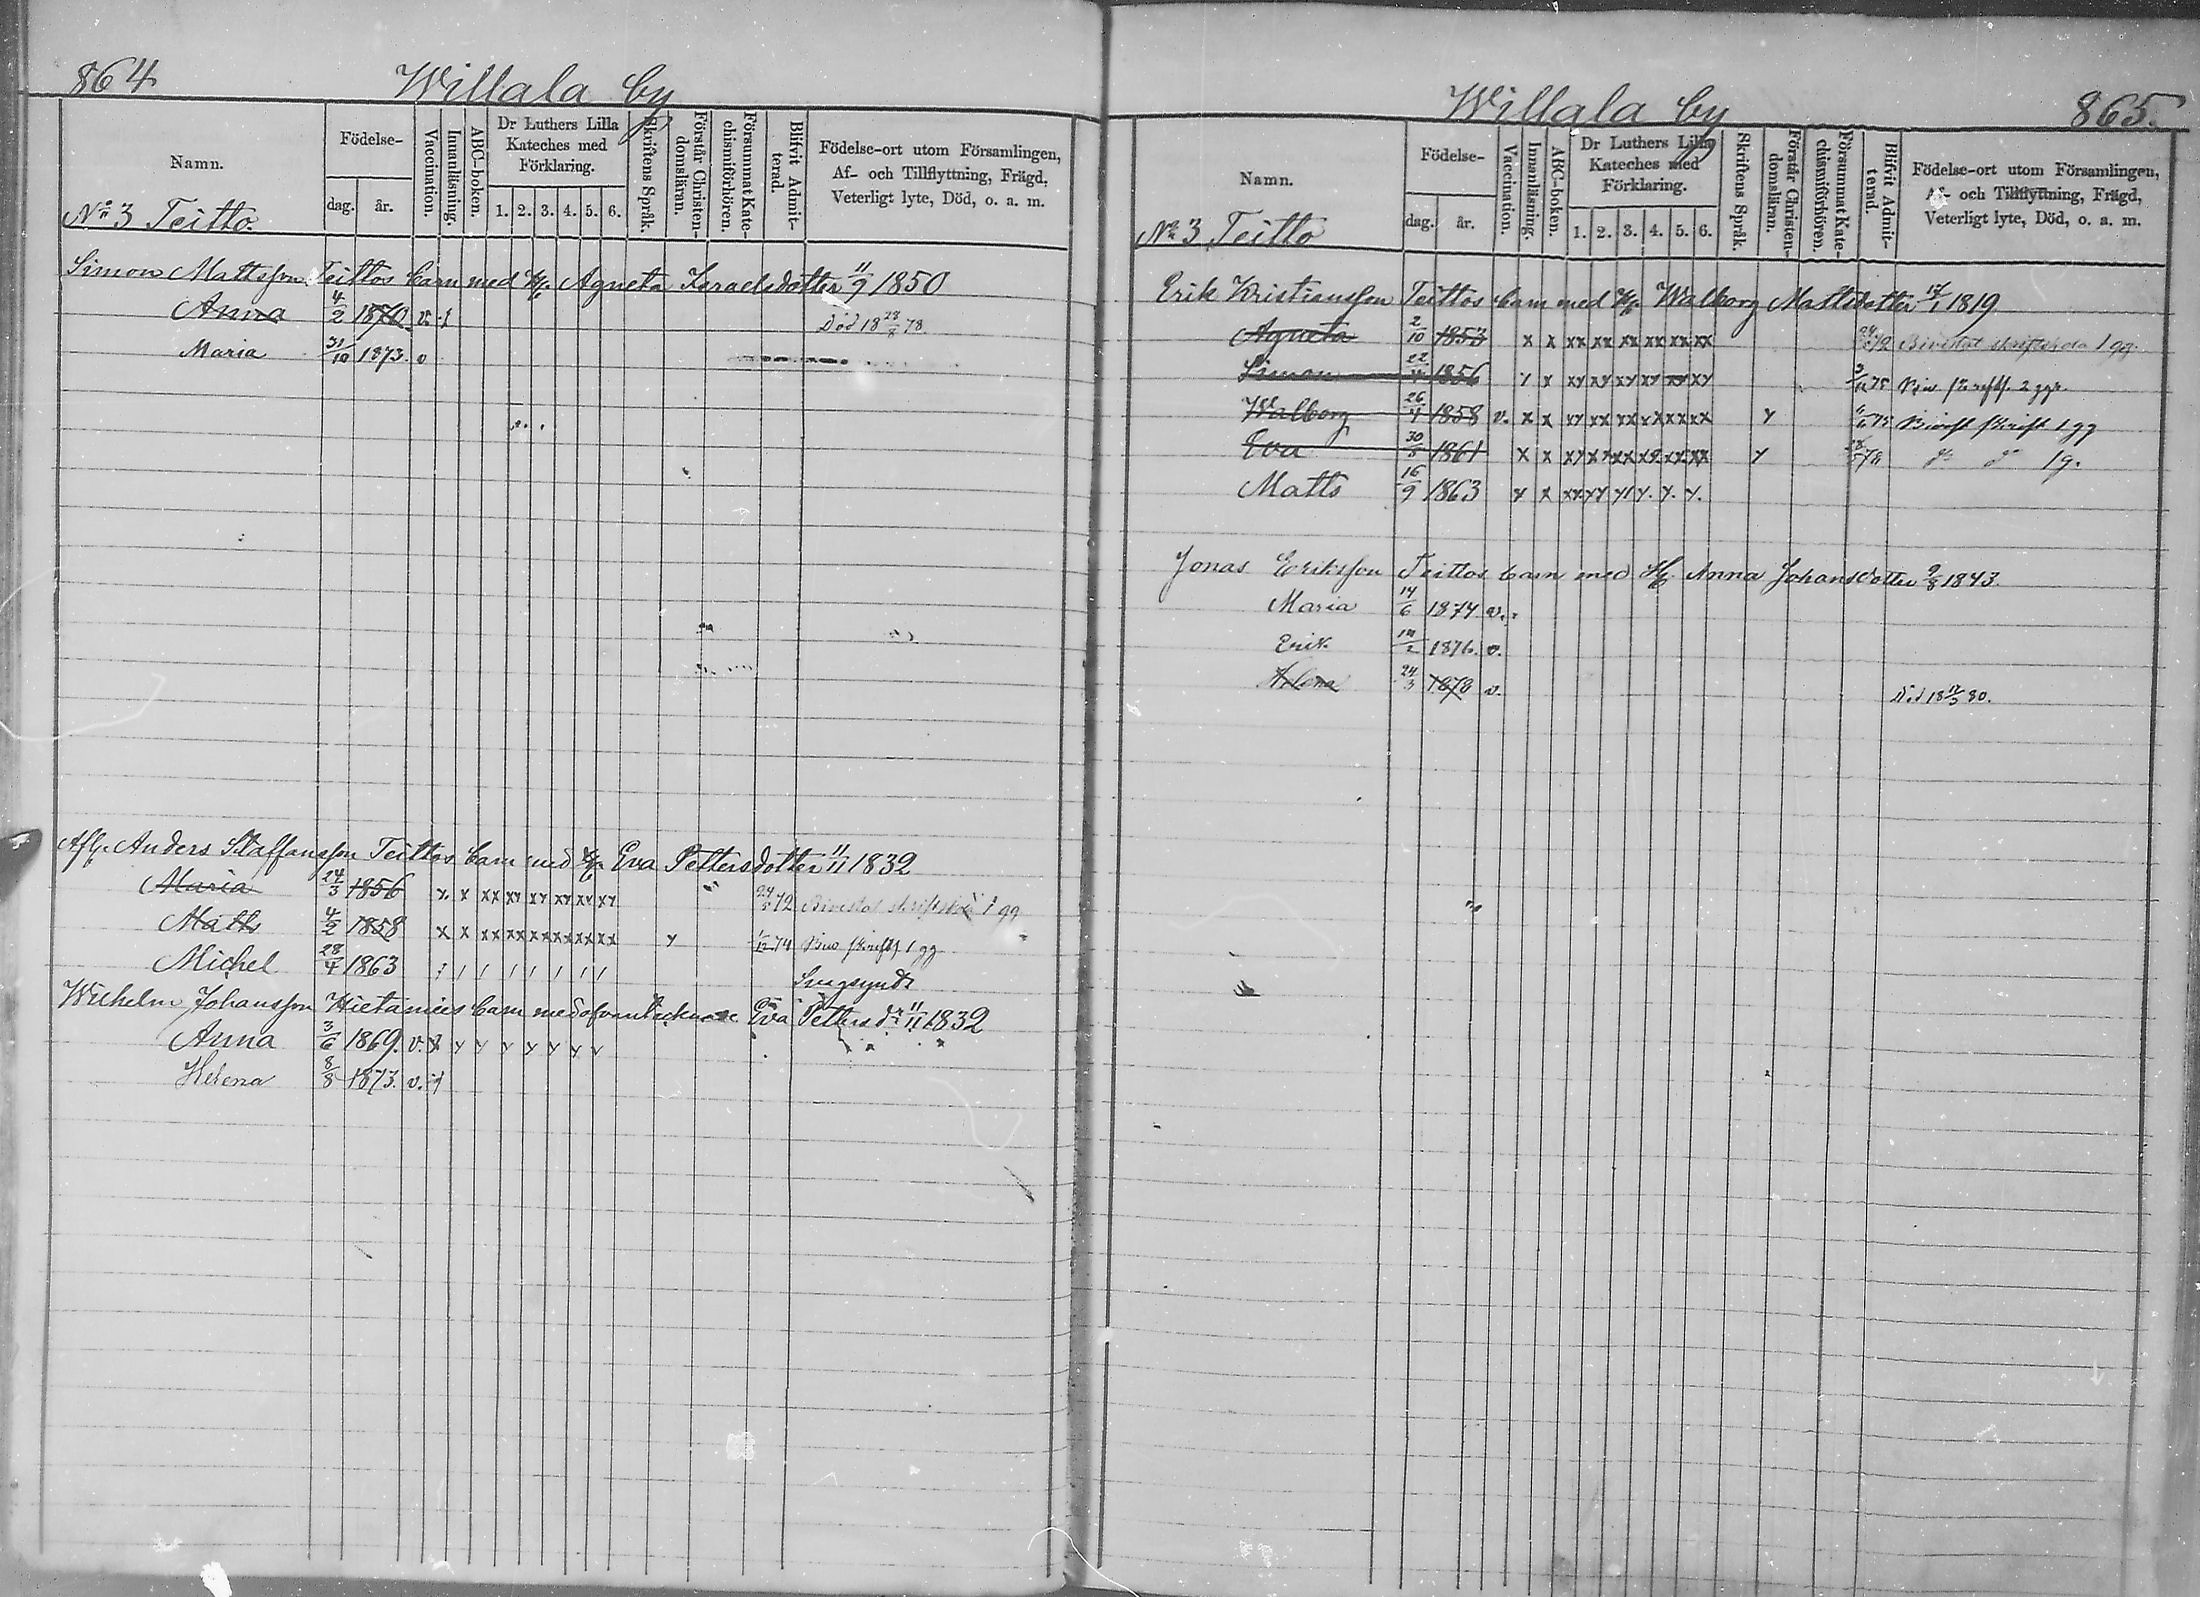 864
Willala by
Namn.
Födelse-
dag.
år.
Vaccination.
Innanläsning.
ABC-boken.
Dr Luthers Lilla
Kateches med
Förklaring.
1. 2. 3. 4. 5. 6.
Skriftens Språk.
Förstår Christen-
domsläran.
Försummat Kate-
chismiförhören.
Blifvit Admit-
terad.
Födelse-ort utom Församlingen,
Af- och Tillflyttning, Frägd,
Veterligt lyte, Död, o. a. m.
No 3 Teitto.
Simon Mattsson Teittos barn med H. Agneta Israelsdotter 11/9 1850
Anna 4/2 1870 v. Död 18 28/8 78.
Maria 31/10 1873. v
Afl. Anders Staffansson Teittos barn med H. Eva Pettersdotter 11/11 1832
Maria 24/3 1856 x x xx xx xx xx xx xx 72 Bivistat skriftskola 1 gg
Matts 4/2 1858 x x xx xx xx xx xx xx x 1/12 74 Biv skriftsk 1 gg
Michel 28/4 1863
Wilhelm Johansson Hietamies barn med Eva Petters dr 11/11 1832
Anna 3/6 1869. v.
Helena 8/8 1873. v.
Willala by
865.
Namn.
Födelse-
dag.
år.
Vaccination.
Innanläsning.
ABC-boken.
Dr Luthers Lilla
Kateches med
Förklaring.
1. 2. 3. 4. 5. 6.
Skriftens Språk.
Förstår Christen-
domsläran.
Försummat Kate-
chismiförhören.
Blifvit Admit-
terad.
Födelse-ort utom Församlingen,
Af- och Tillflyttning, Frägd,
Veterligt lyte, Död, o. a. m.
No 3 Teitto
Erik Kristiansson Teittos barn med H. Walborg Mattsdotter 1819
Agneta 2/10 1853 x x xx xx xx xx xx xx 72 Bivistat skriftskola 1 gg.
Simon 22/4 1856 x x xx xx xx xx xx xx 75 Biv skriftsk. 2 ggr.
Walborg 26/4 1858 v. x x xx xx xx xx xx xx x 75 skrift 1 gg
Eva 30/5 1861 x x xx xx xx xx xx xx x 78 do do 1 g.
Matts 16/9 1863 x x xx
Jonas Eriksson Teittos barn med H. Anna Johansdotter 9/8 1843.
Maria 14/6 1874 v.
Erik 1876. v.
Helena 24/3 1878 v. Död 18 80.